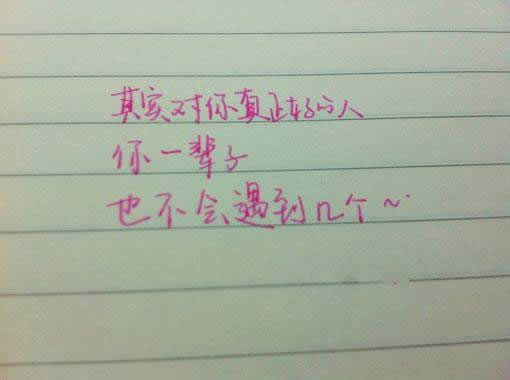 其实对你真正好的人
你一辈子
也不会遇到几个～